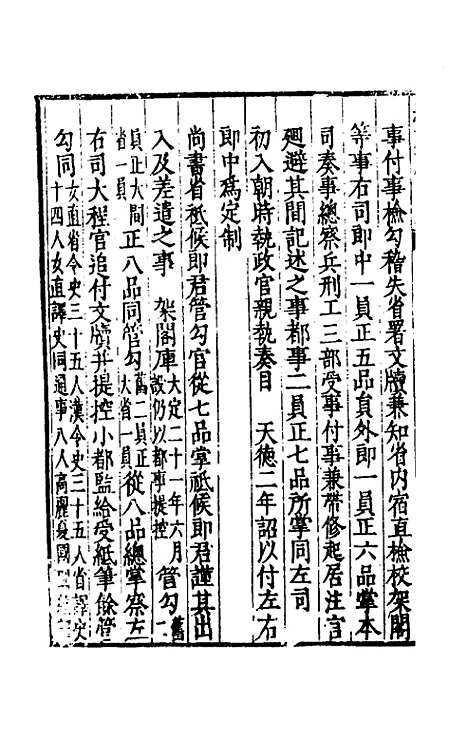 事付事檢勾稽失省署文牘兼知省内宿直檢校架閣
等事右司郎中一員正五品貟外郎一員正六品掌本
司奏事總察兵刑工三部受事付事兼帶修起居注官
廻避其間記述之事都事二員正七品所掌同左司
初入朝時執政官親執奏目　天德二年詔以付左右
郎中爲定制
尚書省祗候郎君管勾官從七品掌祗候郎君謹其出
入及差遣之事　架閣庫大定二十一年六月設仍以都事提控　管勾舊二
員正大間省一員正八品同管勾舊二員正大省一員從八品總掌察左
右司大程官追付文牘并提控小都監給受紙筆餘管
勾同女直省令史三十五人漢令史三十五人省譯史十四人女直譯史同通事八人高麗夏國